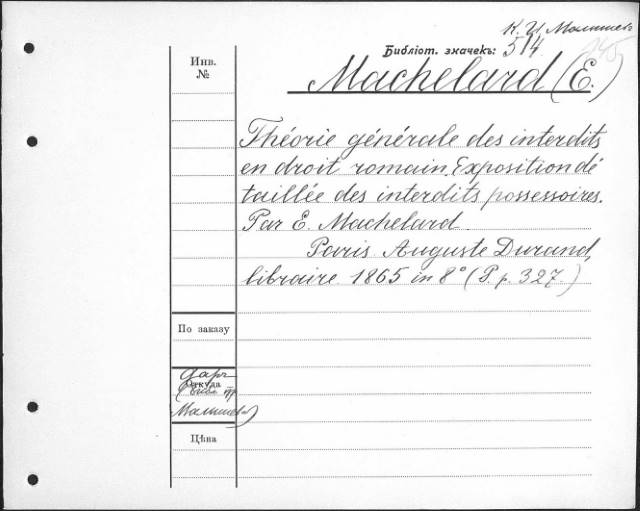 К. И. Малышев
Библіот. значекъ: 5/4
Инв.
№
Machelard (E.)
Théorie générale des interdits
en droit romain. Exposition dé
taillée des interdits possessoires.
Par E. Machelard
Paris. Auguste Durand,
libraire 1865 in 8° (P. p. 327.)
По заказу
Даръ
Откуда
Малышев)
Цѣна